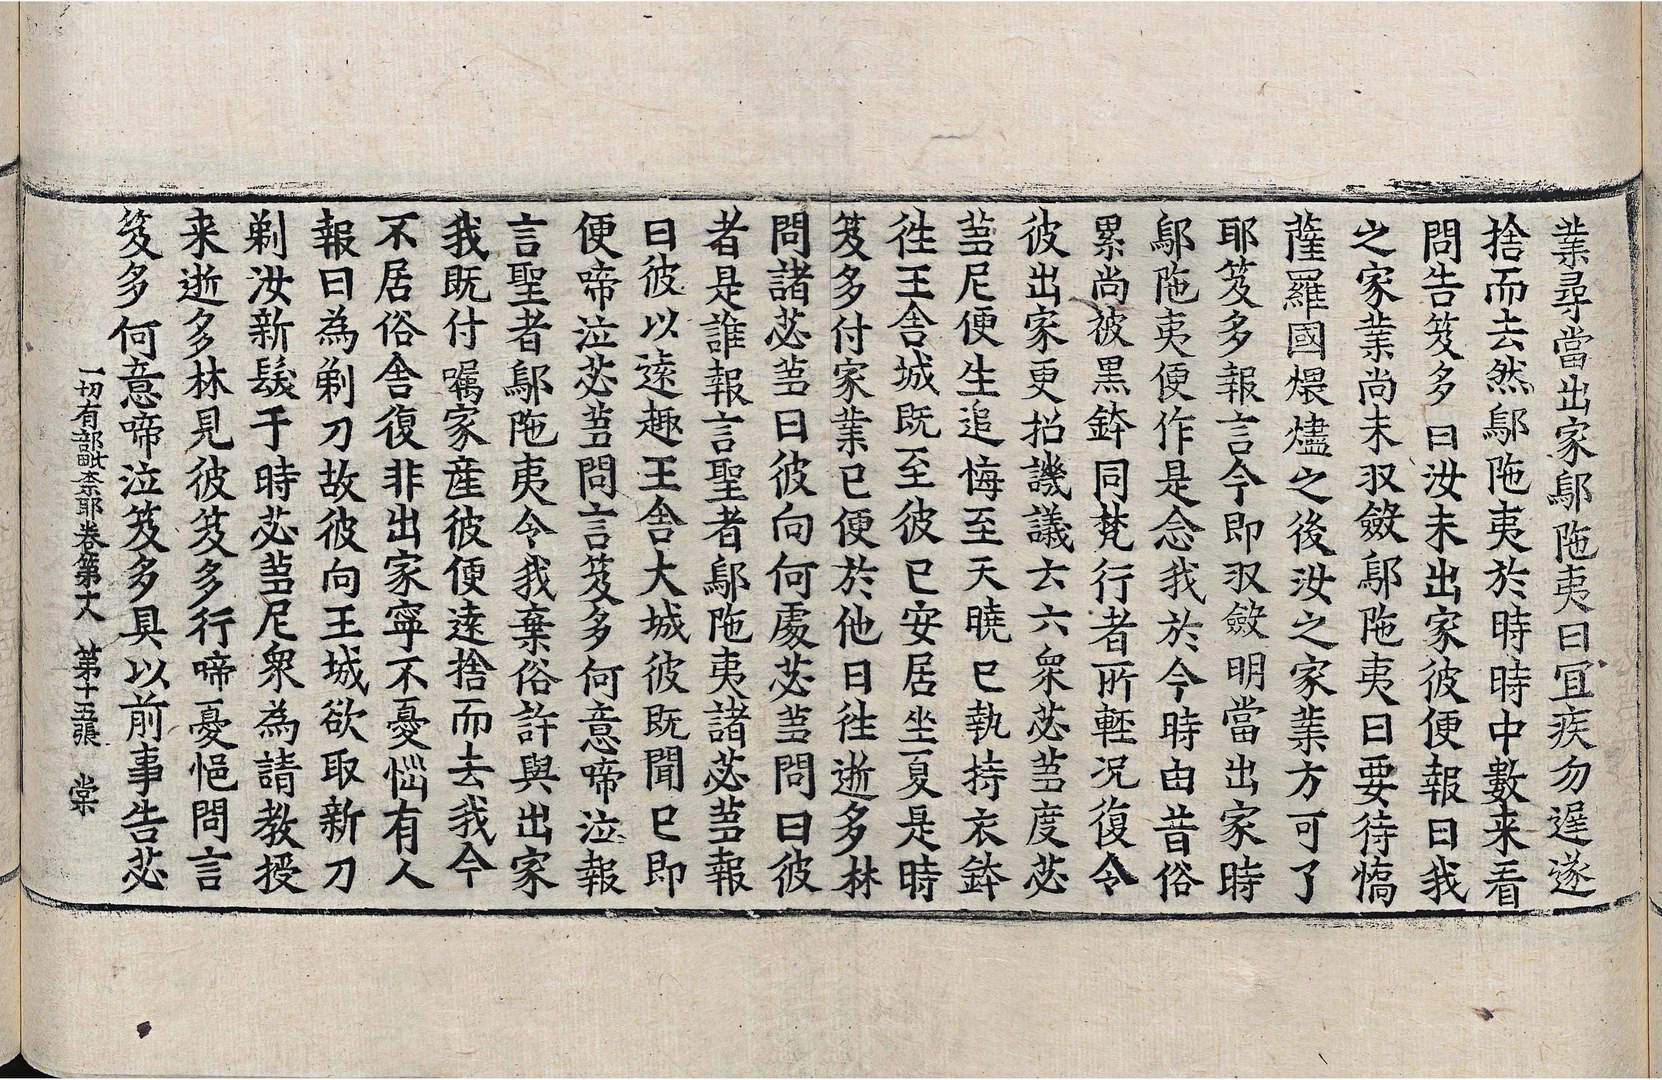 業尋當出家鄔陁夷曰宜疾勿遅遂
捨而去然鄔陁夷於時時中數来看
問告笈多曰汝未出家彼便報曰我
之家業尚未収斂鄔陁夷曰要待憍
薩羅國煨燼之後汝之家業方可了
耶笈多報言今即収斂明當出家時
鄔陁夷便作是念我於今時由昔俗
累尚被黒鉢同梵行者所輕况復令
彼出家更招譏議去六衆苾蒭度苾
蒭尼便生追悔至天曉已執持衣鉢
徃王舎城既至彼已安居坐夏是時
笈多付家業已便於他日徃逝多林
問諸苾蒭曰彼向何處苾蒭問曰彼
者是誰報言聖者鄔陁夷諸苾蒭報
曰彼以逺趣王舎大城彼既聞已即
便啼泣苾蒭問言笈多何意啼泣報
言聖者鄔陁夷令我棄俗許與出家
我既付囑家産彼便逺捨而去我今
不居俗舎復非出家寧不憂惱有人
報曰為剃刀故彼向王城欲取新刀
剃汝新髮于時苾蒭尼衆為請教授
来逝多林見彼笈多行啼憂悒問言
笈多何意啼泣笈多具以前事告苾
一切有部毗柰耶卷第十八 第十五張 棠